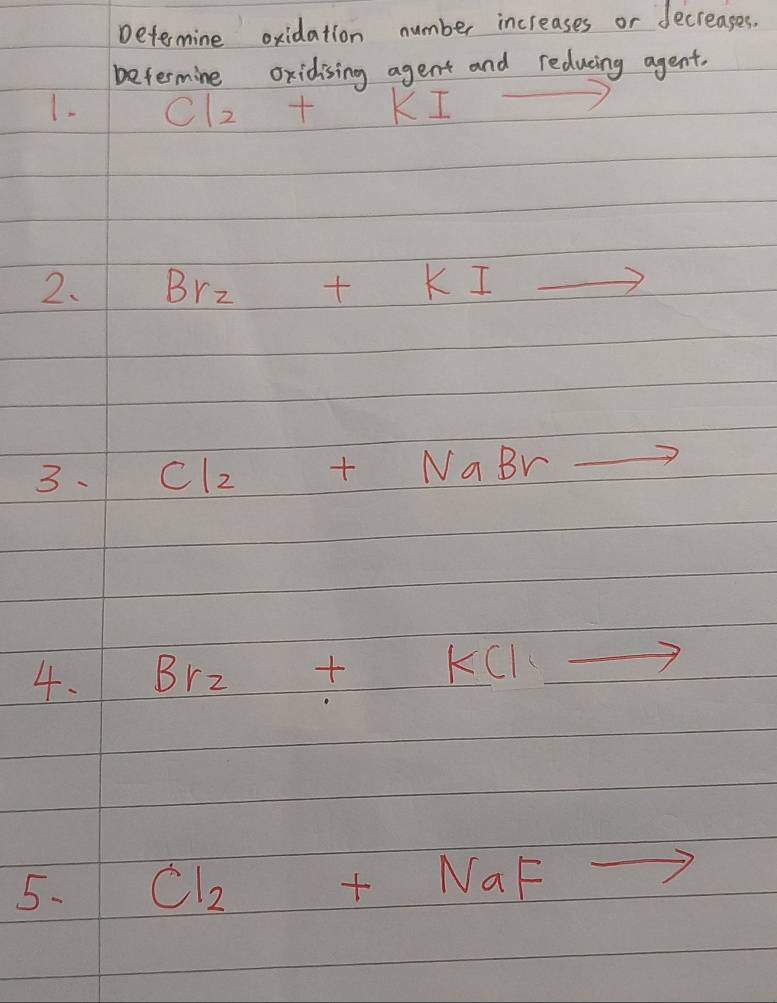 Determine oxidation number increases or decreases.
Determine oxidising agent and reducing agent.
1. Cl2 + KI →
2. Br2 + KI →
3. Cl2 + NaBr →
4. Br2 + KCl →
5. Cl2 + NaF →